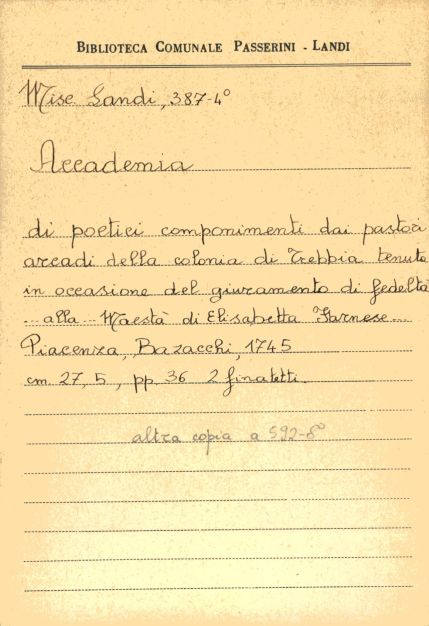 BIBLIOTECA COMUNALE PASSERINI - LANDI
Misc Landi, 387-4°
Accademia
di poetici componimenti dai pastori
arcadi della colonia di Trebbia tenuta
in occasione del giuramento di fedeltà
... alla ... Maestà di Elisabetta Farnese...
Piacenza, Bazacchi, 1745
cm. 27,5, pp. 36 2 finaletti.
altra copia a 592-8°